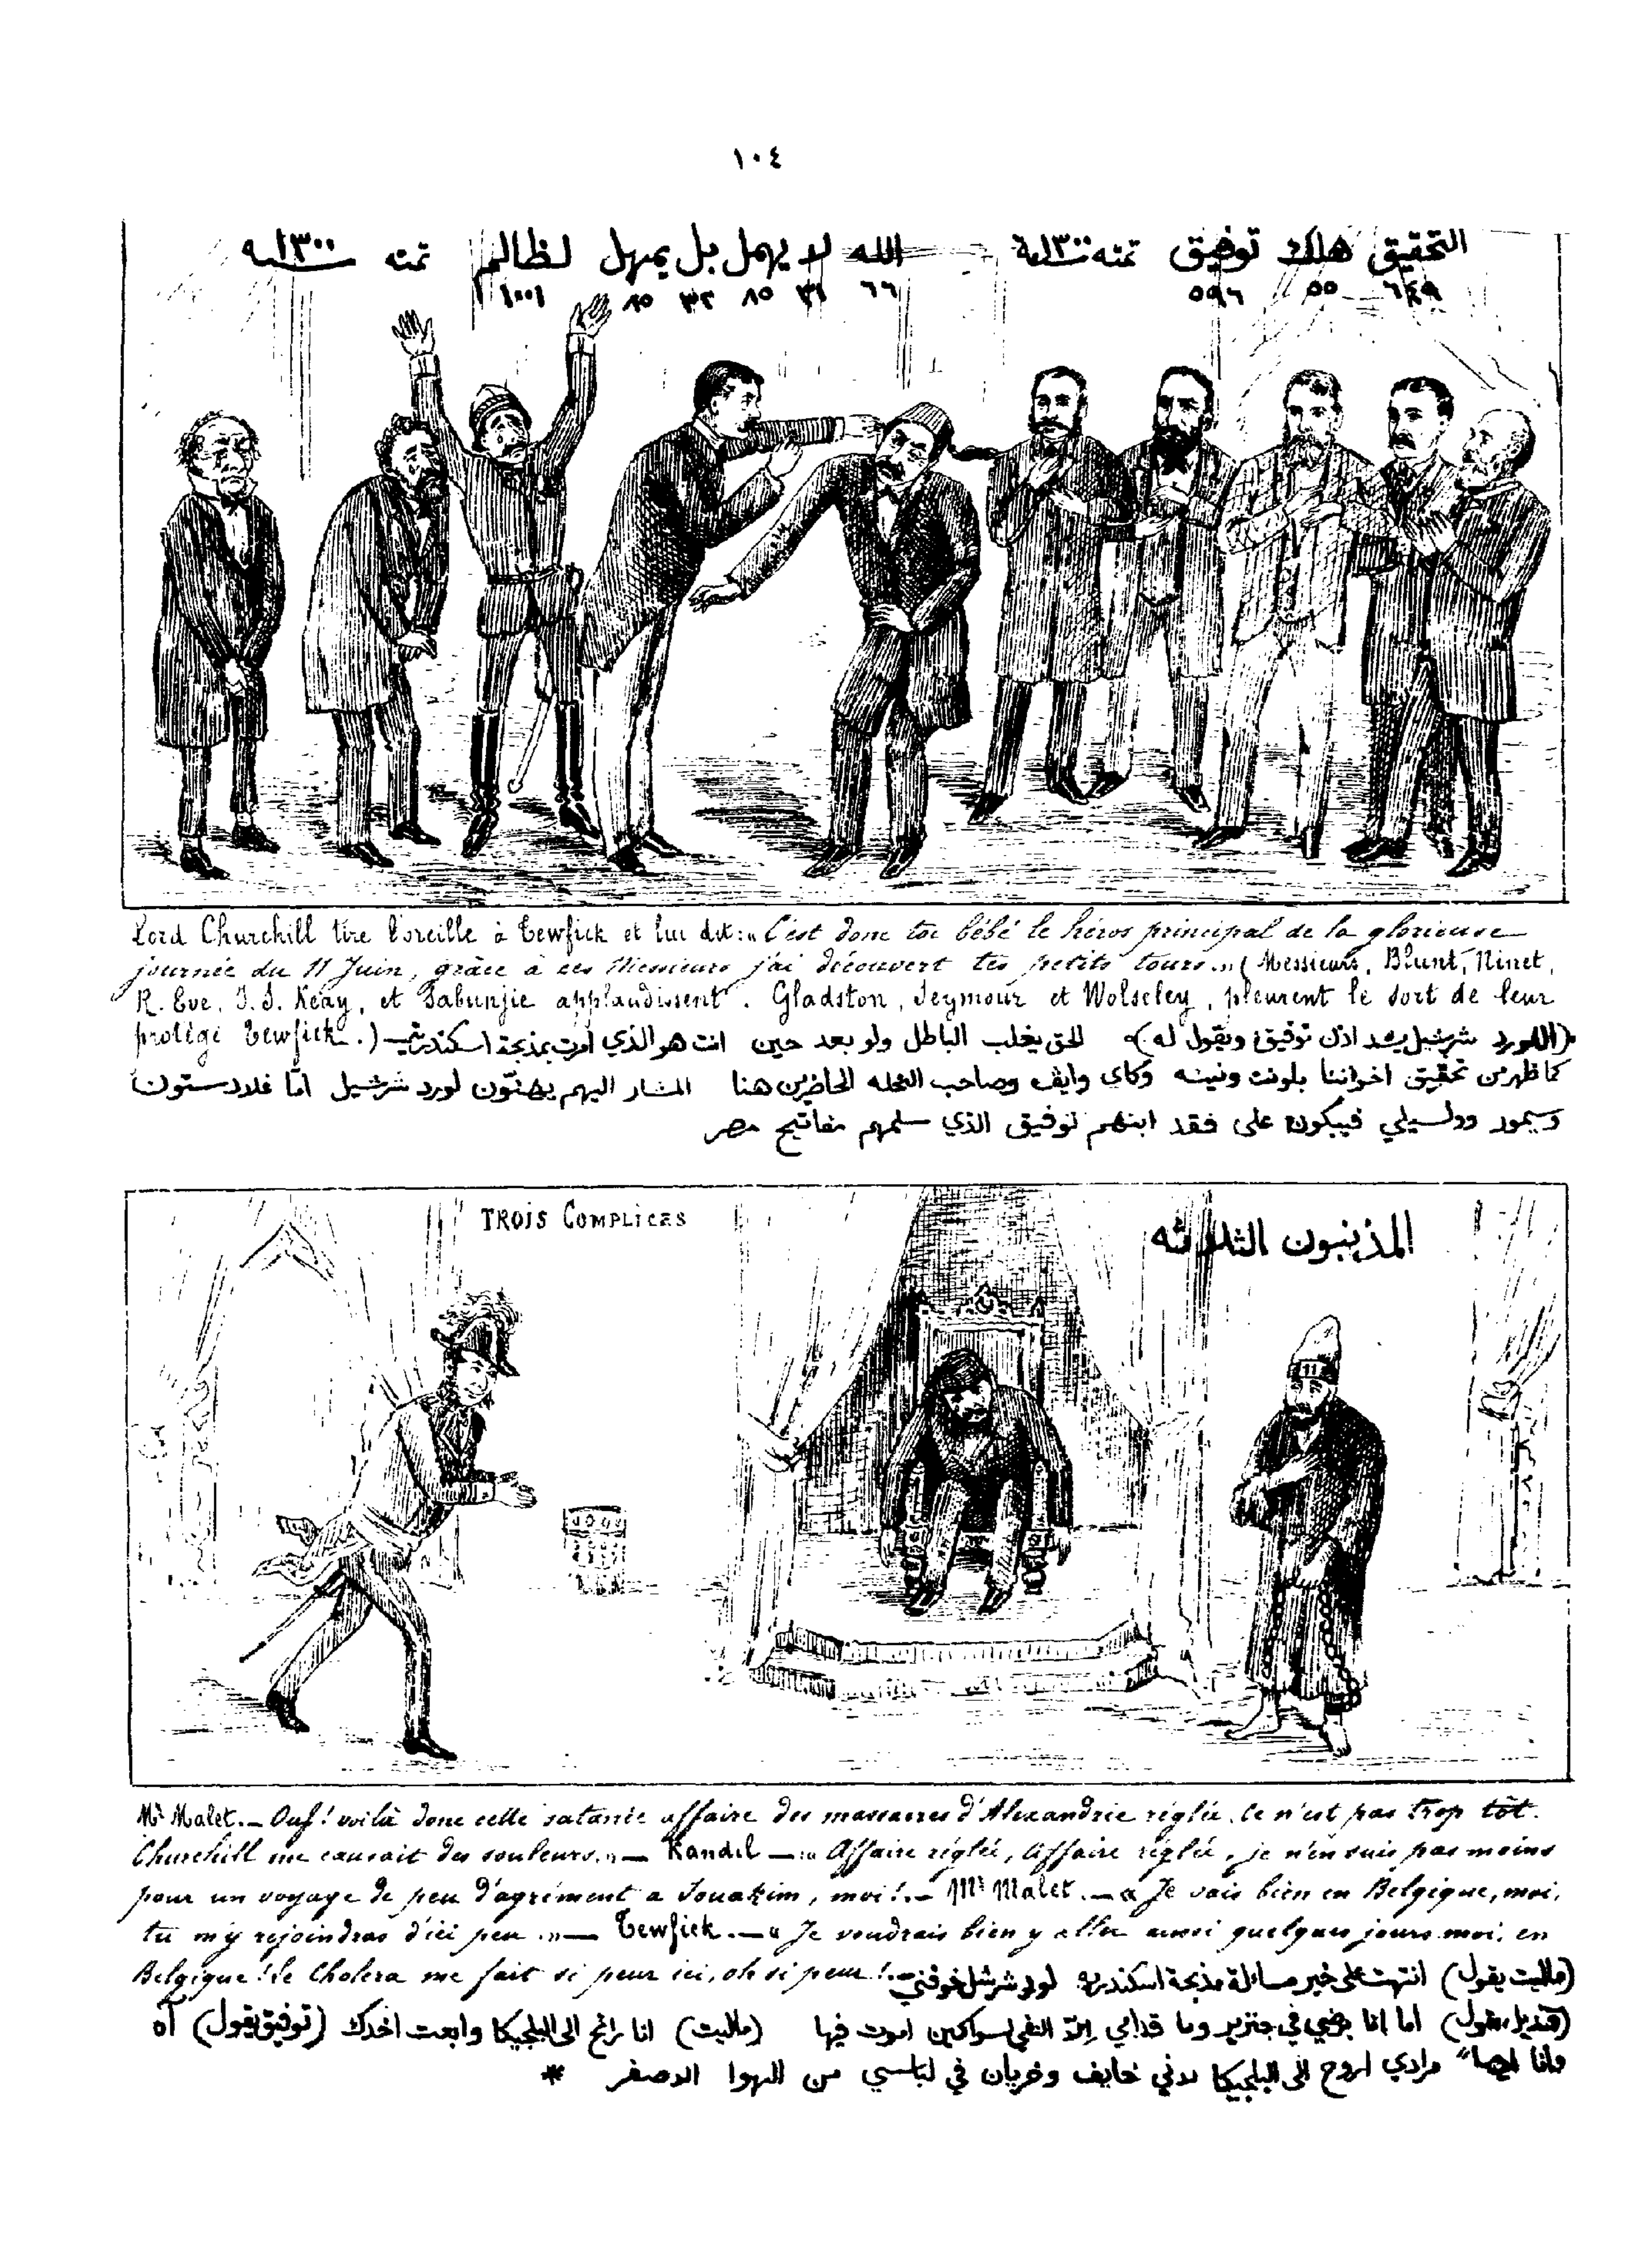 ١٠٤
التحقيق هلك توفيق تمته سنة ١٣٠٠ الله لا يهمل بل يمهل لظالم تمته سنه ١٣٠٠
٦٤٩ ٥٥ ٥٩٦ ٦٦ ٣١ ٨٥ ٣٢ ٨٥ ١٠٠١
Lord Churchill tire l'oreille à Tewfick et lui dit: « C'est donc toi bébé le héros principal de la glorieuse
journée du 11 Juin, grâce à ces Messieurs j'ai découvert tes petits tours..» ( Messieurs, Blunt, Ninet,
R. Eve, J. S. Keay, et Sabunjie applaudissent. Gladston, Seymour et Wolseley, pleurent le sort de leur
protégé Tewfick.)
(اللورد شرشيل يشد اذن توفيق ويقول له) الحق يغلب الباطل ولو بعد حين انت هو الذي امرت بمذبحة اسكندرية
كما ظهر من تحقيق اخواننا بلونت ونينه وكاي وايف وصاحب النحله الحاضرين هنا المشار اليهم يهنئون لورد شرشيل امّا غلادستون
وسيمور وولسيلي فيبكون على فقد ابنهم توفيق الذي سلمهم مفاتيح مصر
TROIS COMPLICES
المذنبون الثلاثه
11
Mr Malet. — Ouf! voilà donc cette satanée affaire des massacres d'Alexandrie réglée. Ce n'est pas trop tôt.
Churchill me causait des souleurs.» — Kandil —: « Affaire réglée, affaire réglée, je n'en suis pas moins
pour un voyage de peu d'agrément a Souakim, moi!. — Mr Malet. — « Je vais bien en Belgique, moi,
tu m'y rejoindras d'ici peu .» — Tewfick. — « Je voudrais bien y aller aussi quelques jours moi, en
Belgique! le Cholera me fait si peur ici, oh si peur!.—
(ماليت يقول) انتهت على خير مسالة مذبحة اسكندريه لورد شرشل خوفني
(قنديل يقول) اما انا بضي في جنزير وما قدامي الّا النفي لسواكين اموت فيها (ماليت) انا رائح الى البلجيكا وابعت اخدك (توفيق يقول) آه
وانا ايضاً مرادي اروح الى البلجيكا لاني خايف وخريان في لباسي من الهوا الاصفر *